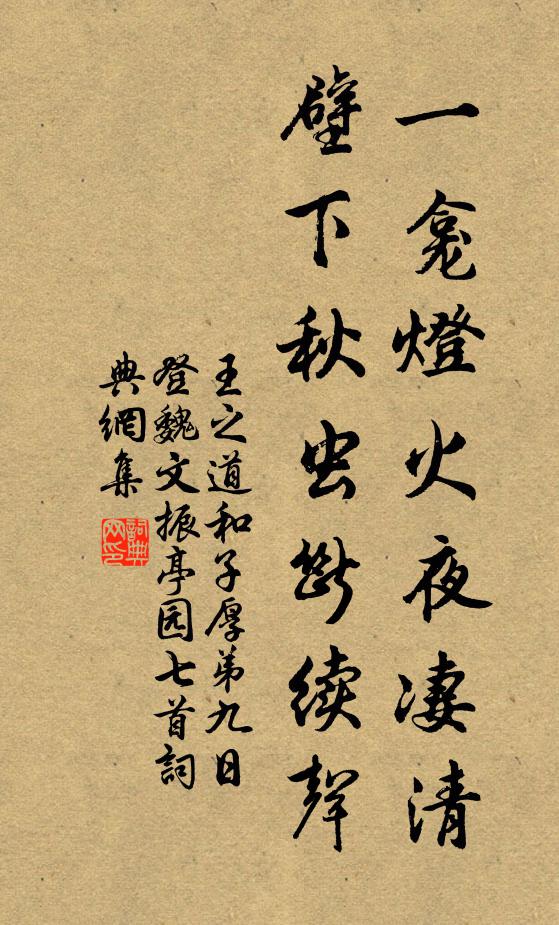 一龛燈火夜凄清
壁下秋虫斷续聲
王之道和子厚弟九日
登魏文振亭园七首詞
典網集
詞典
网印